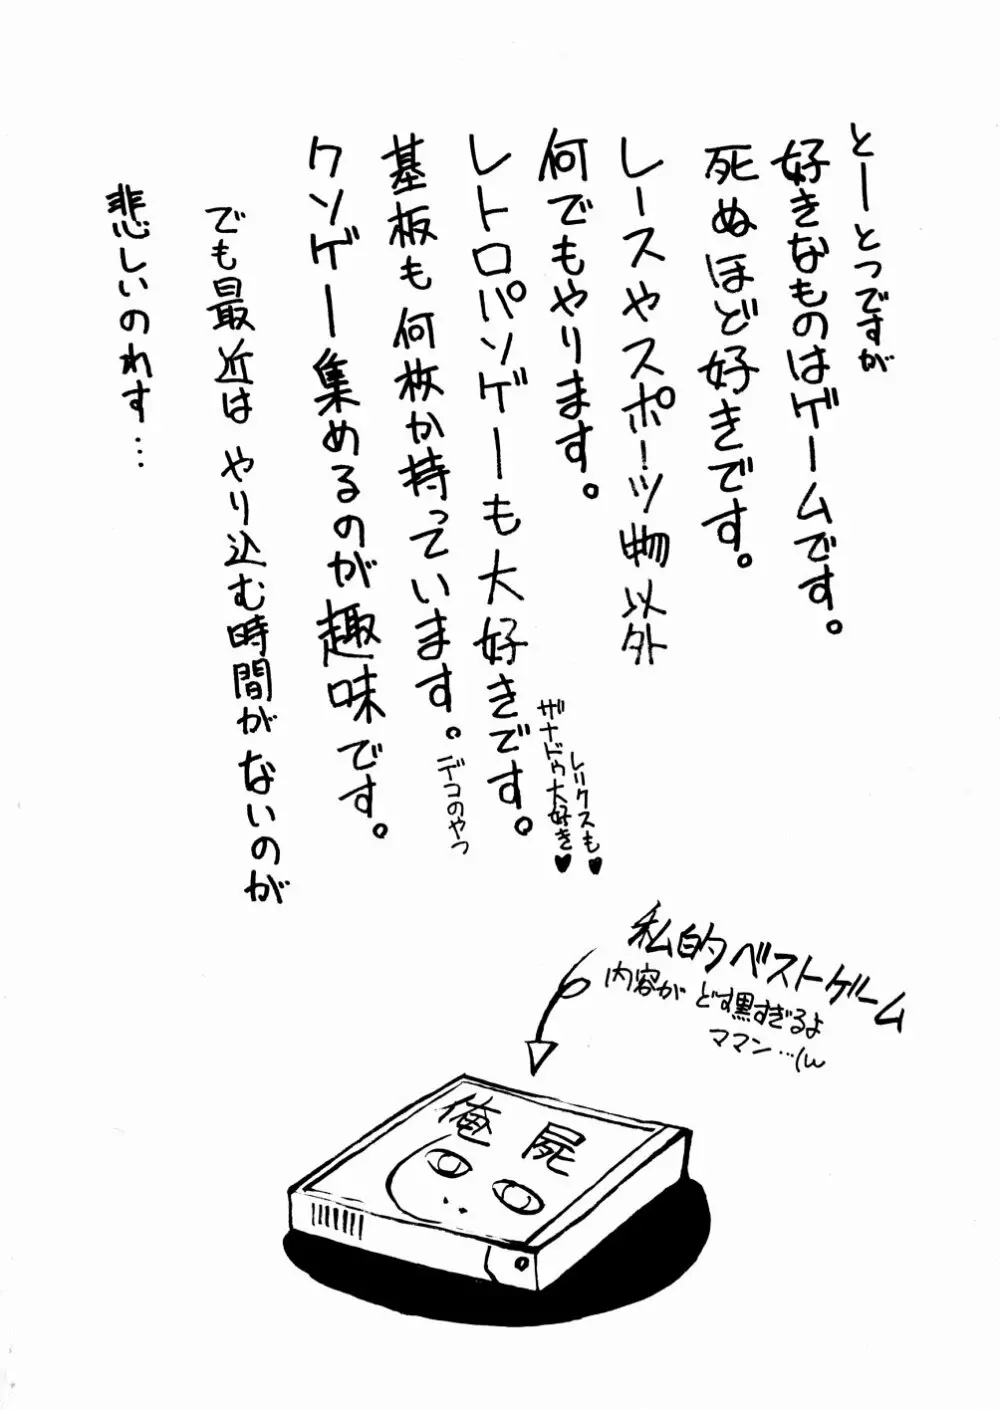 とーとつですが
好きなものはゲームです。
死ぬほど好きです。
レースやスポーツ物以外
何でもやります。
レトロパソゲーも大好きです。
ザナドゥ大好き♥
レリクスも♥
基板も何枚か持っています。
デコのやつ
クソゲー集めるのが趣味です。
でも最近は やり込む時間がないのが
悲しいのれす…
私的ベストゲーム
内容が どす黒すぎるよ
ママン…(w
俺屍